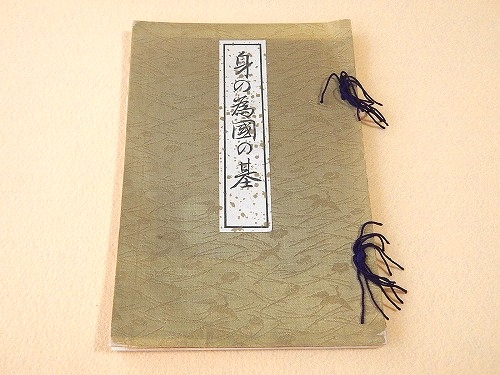 身の為國の基